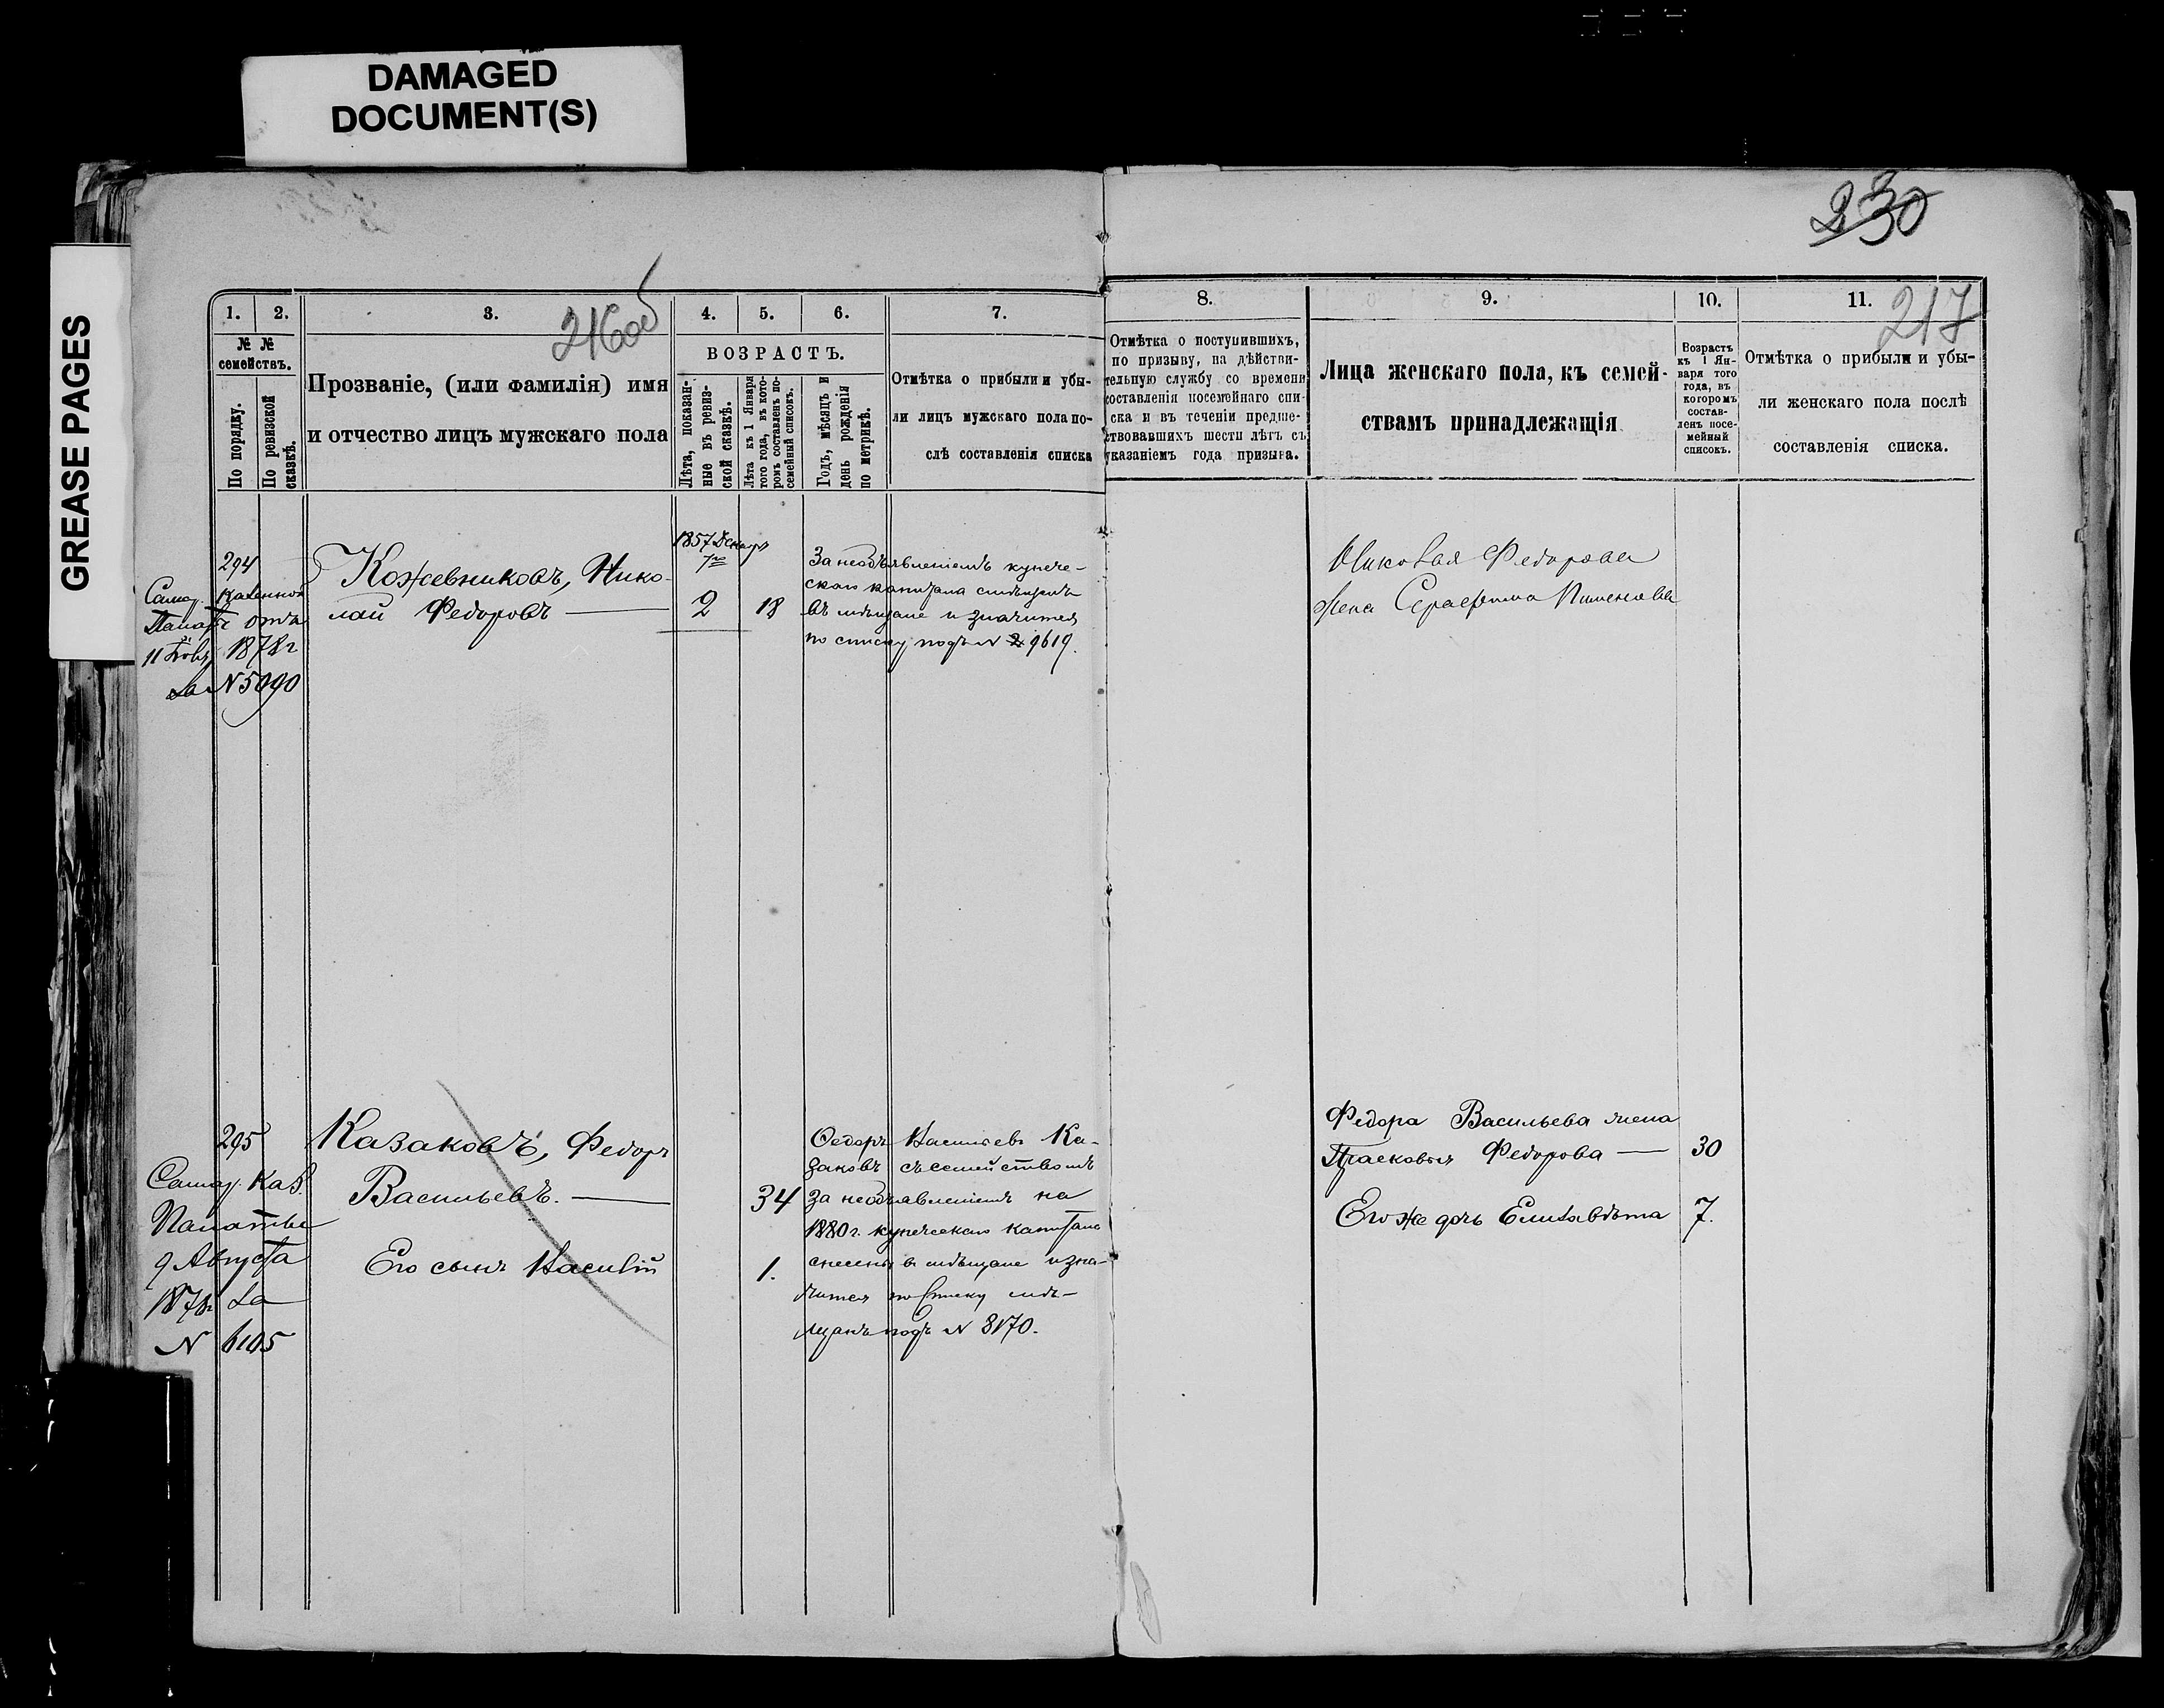 DAMAGED
DOCUMENT(S)
GREASE PAGES
230
216об
217
1.
2.
3.
4.
5.
6.
7.
8.
9.
10.
11.
№ №
семействъ.
По порядку.
По ревизской
сказкѣ.
Прозваніе, (или фамилія) имя
и отчество лицъ мужскаго пола
ВОЗРАСТЪ.
Лѣта, показан-
ные въ ревиз-
ской сказкѣ.
Лѣта къ 1 Января
того года, въ кото-
ромъ составленъ по-
семейный списокъ.
Годъ, мѣсяцъ и
день рожденія
по метрикѣ.
Отмѣтка о прибыли и убы-
ли лицъ мужскаго пола по-
слѣ составленія списка
Отмѣтка о поступившихъ,
по призыву, на дѣйстви-
тельную службу со времени
составленія посемейнаго спи-
ска и въ теченіи предше-
ствовавшихъ шести лѣтъ съ
указаніемъ года призыва.
Лица женскаго пола, къ семей-
ствамъ принадлежащія
Возрастъ
къ 1 Ян-
варя того
года, въ
которомъ
состав-
ленъ посе-
мейный
списокъ.
Отмѣтка о прибыли и убы-
ли женскаго пола послѣ
составленія списка.
294
Самар. Казенной
Палаты отъ
1878г
за N 5090
Кожевниковъ, Нико-
лай Федоровъ
1857 Декабря
2
18
За необъявленіемъ купече-
скаго капитала
въ мѣщане и значится
по списку подъ N 9619.
Николая Федорова
жена Серафима Пименова
295
Самар. Каз.
Палаты
9 Августа
1878г за
N 6105
Казаковъ, Федоръ
Васильевъ.
34
Его сынъ Василій
1.
Федоръ Васильевъ Ка-
заковъ съ семействомъ
за необъявленіемъ на
1880 г. купеческаго капитала
снесены въ мѣщане и зна-
чится по списку мѣ-
щанъ подъ N 8170.
Федора Васильева жена
Прасковья Федорова
30
Его же дочь Елизавѣта
7.